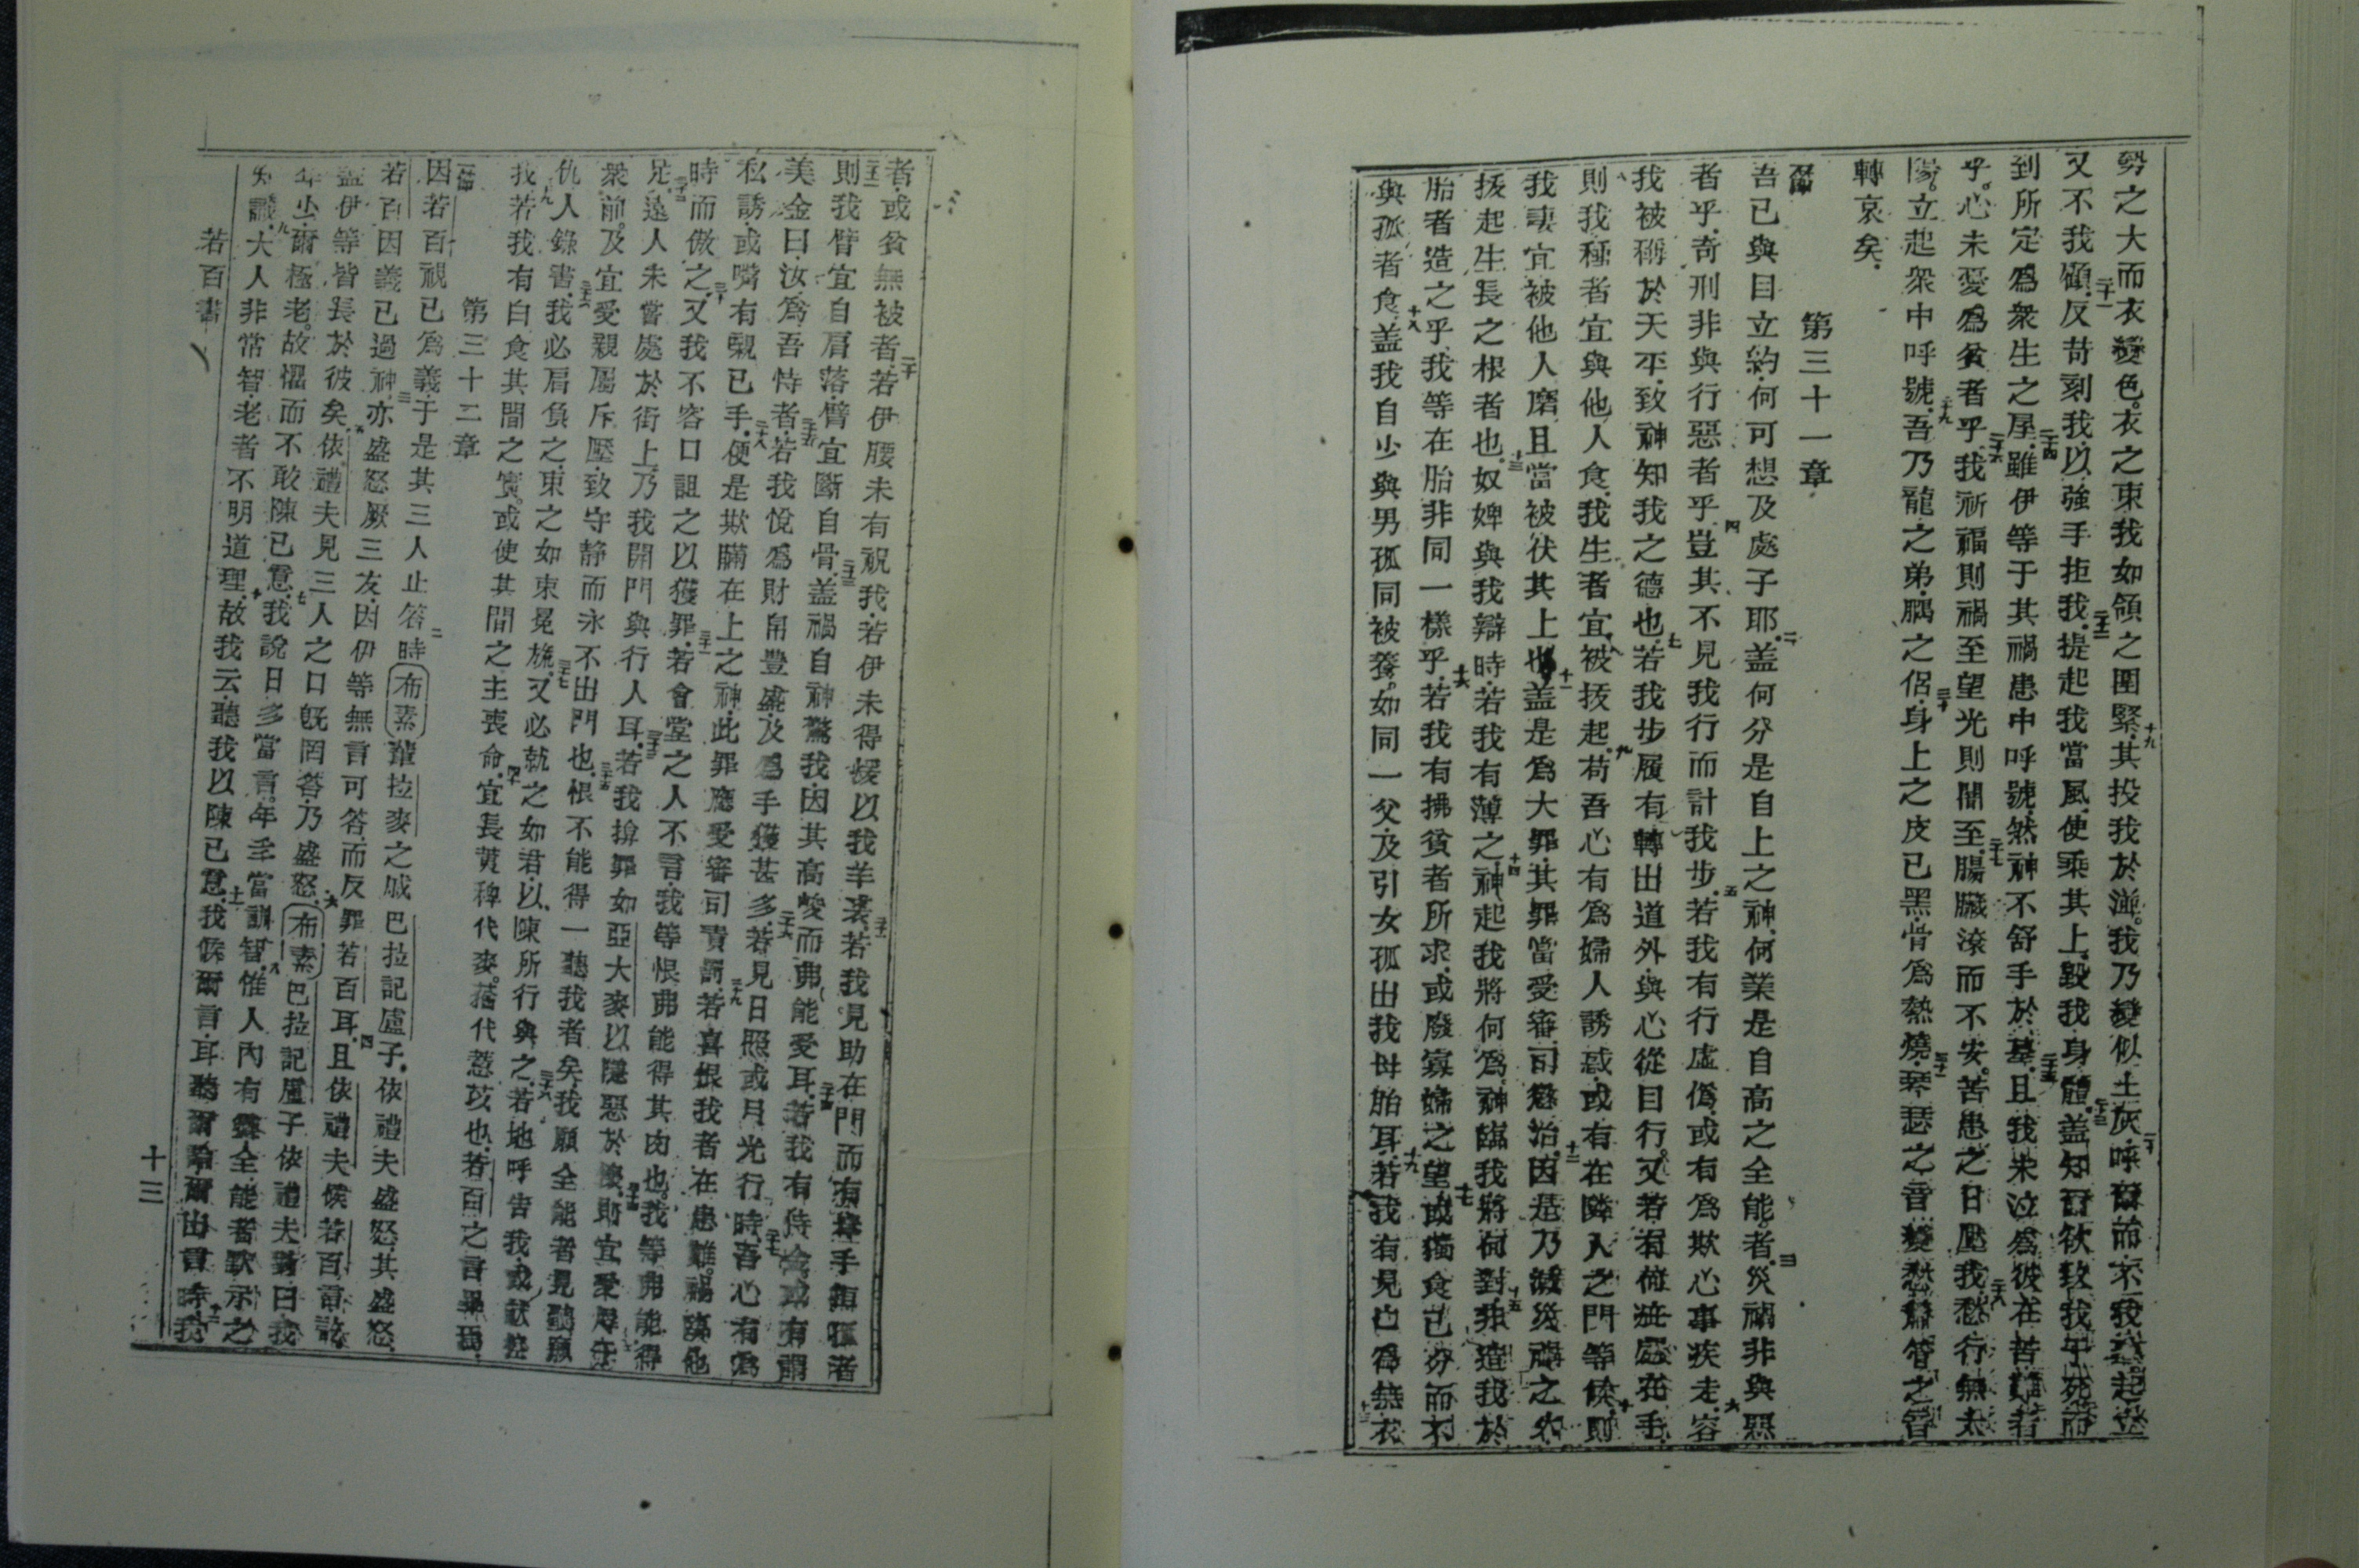 勢之大而衣變色。衣之束我如領之圍緊、十九其投我於濘。我乃變似土灰、二十呼爾而不我起立
又不我顧、二十一反苛刻我、以強手拒我、二十二提起我當風、使乘其上、毀我身體、二十三盖知爾欲致我于死而
到所定為衆生之屋、二十四雖伊等于其禍患中呼號、然神不舒手於墓、二十五且我未泣為彼在苦難者
乎。心未憂為貧者乎、二十六我祈福則禍至、望光則闇至、二十七腸臟滾而不安。苦患之日壓我、二十八愁行無太
陽。立起衆中呼號、二十九吾乃龍之弟、鵰之侶、三十身上之皮已黑、骨為熱燒、三十一琴瑟之音變愁、簫管之音
轉哀矣。
第三十一章
一節吾已與目立約、何可想及處子耶、二盖何分是自上之神、何業是自高之全能者、三災禍非與惡
者乎、奇刑非與行惡者乎、四豈其不見我行而計我步、五若我有行虛僞、或有為欺心事疾走、六容
我被稱於天平、致神知我之德也、七若我步履有轉出道外、與心從目行。又若有何玷在手、
則我種者宜與他人食、我生者宜被拔起、九苟吾心有為婦人誘惑、或有在隣人之門等候、十則
我妻宜被他人磨、且當被伏其上也、十一盖是為大罪、其罪當受審司懲治、十二因是乃災禍之火
拔起生長之根者也、十三奴婢與我辯時、若我有薄之、十四神起我將何為、神臨我將何對、十五非造我於
胎者造之乎、我等在胎非同一樣乎、十六若我有拂貧者所求、或廢寡婦之望、十七或獨食己分而不
與孤者食、十八盖我自少與男孤同被養。如同一父、及引女孤出我母胎耳、十九若我有見亡為無衣
者、或貧無被者、二十若伊腰未有祝我、若伊未得煖以我羊裘、二十一若我見助在門而有舉手孤者
二十二則我臂宜自肩落、臂宜斷自骨、二十三盖禍自神驚我、因其高峻而弗能受耳、二十四若我有恃金、或有謂
美金曰、汝為吾恃者、二十五若我悅為財帛豐盛、及為手獲甚多、二十六若見日照或月光行時、二十七吾心有為
私誘、或嘴有親已手、二十八便是欺瞞在上之神、此罪應受審司責罰、二十九若喜恨我者在患難。禍臨他
時而傲之、三十又我不容口詛之以獲罪、三十一若會堂之人不言、我等恨弗能得其肉也。我等弗能得
足、三十二遠人未嘗處於街上、乃我開門與行人耳、三十三若我揜罪如亞大麥以隱惡於懷、三十四則宜愛
衆前。及宜受親屬斥壓、致守静而永不出門也、三十五恨不能得一聽我者矣、我願全能者見聽、願
仇人錄書、三十六我必肩負之、束之如束冕旒、三十七又必就之如君、以陳所行與之、三十八若地呼告我、或
三十九我若我有白食其間之實。或使其間之主喪命、四十宜長蒺稗代麥。代荍也、若百之言畢焉。
第三十二章
一節因若百視已為義、于是其三人止答時、二布素輩拉麥之戚巴拉記盧子、依禮夫盛怒、其盛怒
若百因義已過神、三亦盛怒厥三友、因伊等無言可答、而反罪若百耳、四且依禮夫候若百言訖
盖伊等皆長於彼矣、五依禮夫見三人之口旣罔答、乃盛怒、六布素巴拉記盧子依禮夫對曰、我
年少、爾極老。故懼而不敢陳已意、七我說日多當言。年多當訓智、八惟人內有靈、全能者默示之
知識、九大人非常智、老者不明道理、十故我云、聽我以陳已意、十一我候爾言、耳聽爾論、爾出言時、十二我
若百書
十三